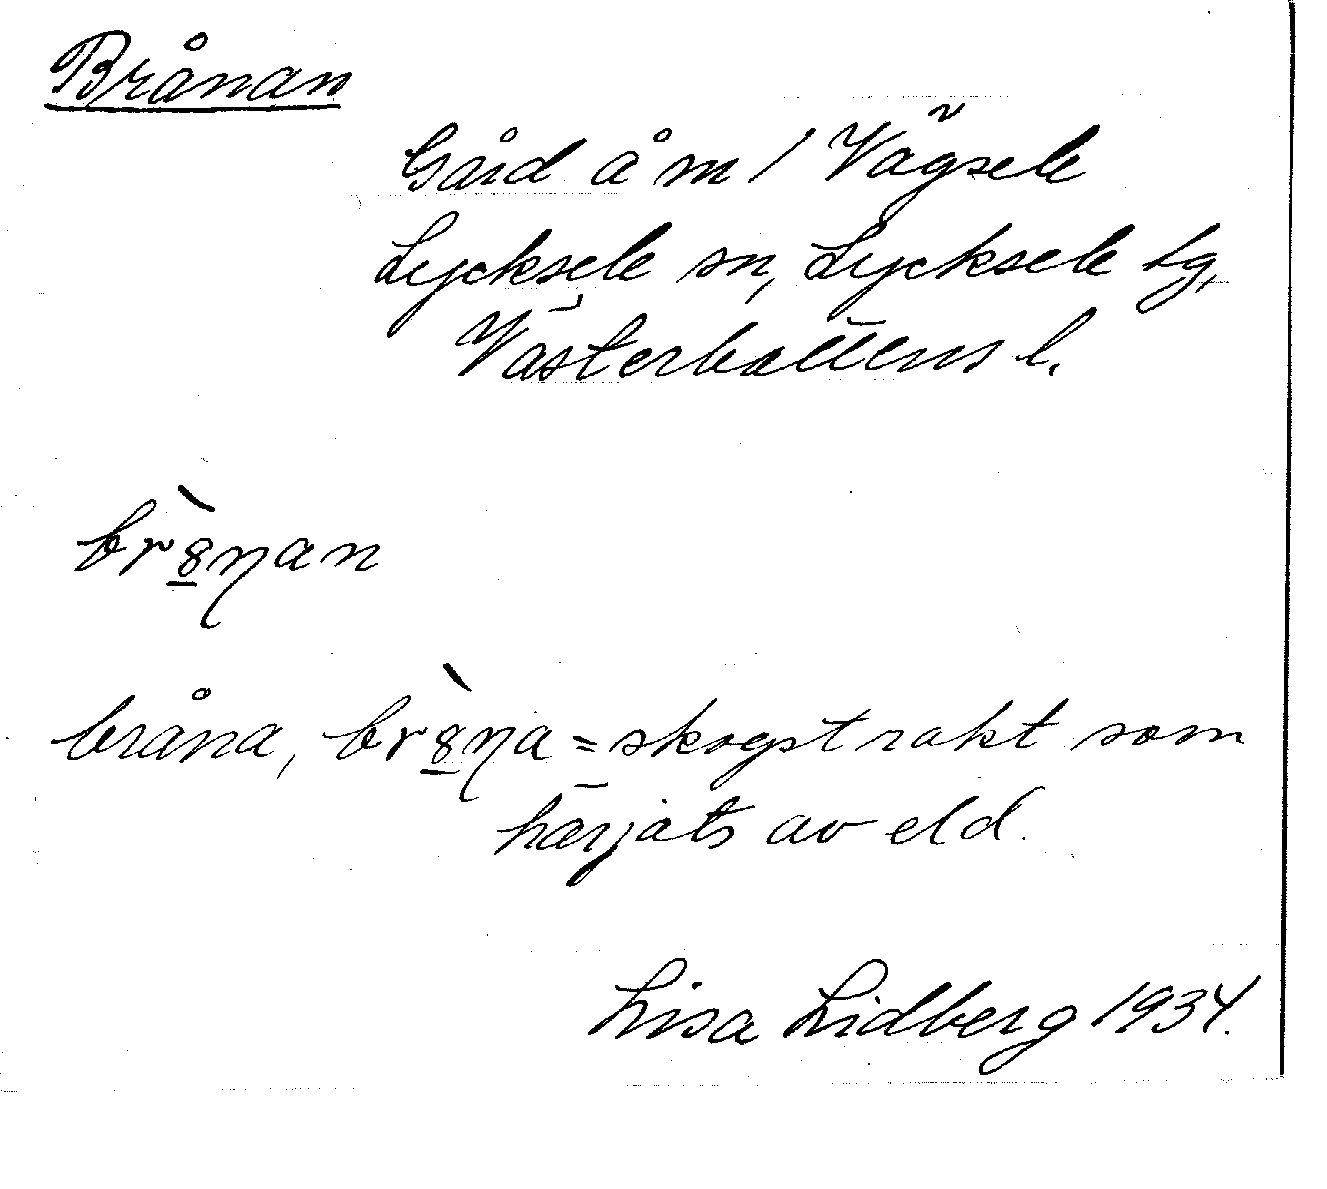 Brånan
Gård å m / Vägsele
Lycksele sn, Lycksele tg,
Västerbottens l.
br8̲̀ŋan
bråna, br8̲̀ŋa = skogstrakt som
härjats av eld.
Lisa Lidberg 1934.